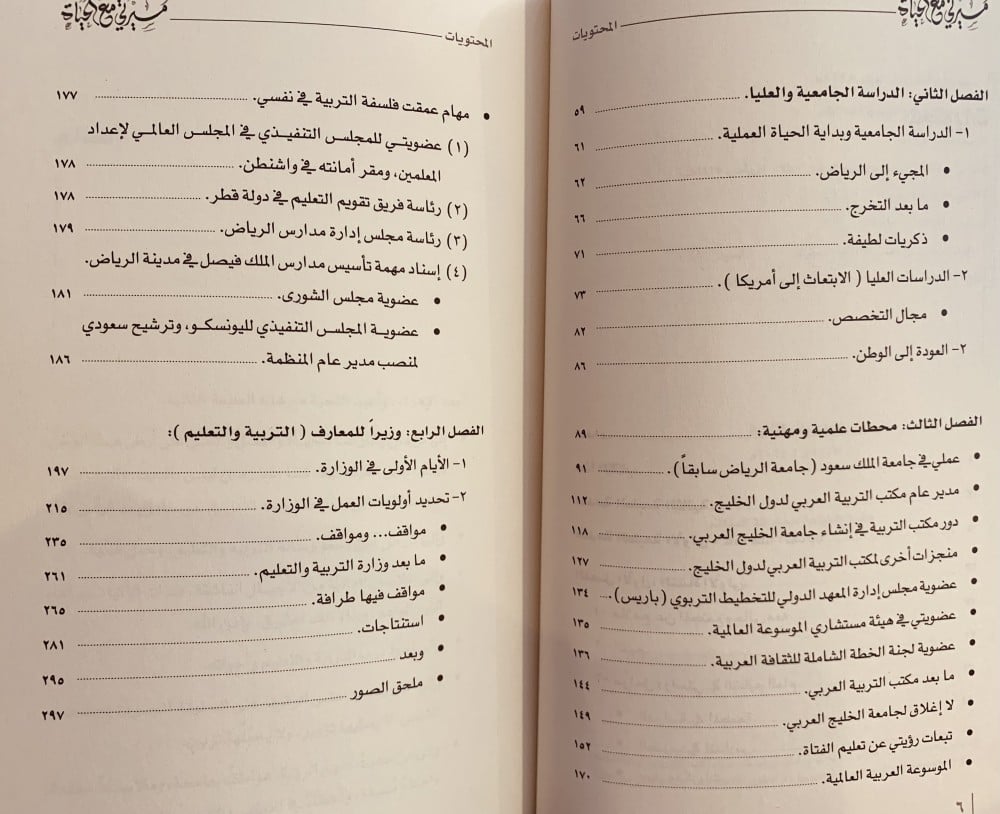 مسيرتي مع الحياة
المحتويات
الفصل الثاني: الدراسة الجامعية والعليا. ٥٩
١- الدراسة الجامعية وبداية الحياة العملية. ٦١
• المجيء إلى الرياض. ٦٢
• ما بعد التخرج. ٦٦
• ذكريات لطيفة. ٧١
٢- الدراسات العليا ( الابتعاث إلى أمريكا ). ٧٣
• مجال التخصص. ٨٢
٢- العودة إلى الوطن. ٨٦
الفصل الثالث: محطات علمية ومهنية: ٨٩
• عملي في جامعة الملك سعود (جامعة الرياض سابقاً). ٩١
• مدير عام مكتب التربية العربي لدول الخليج. ١١٢
• دور مكتب التربية في إنشاء جامعة الخليج العربي. ١١٨
• منجزات أخرى لمكتب التربية العربي لدول الخليج. ١٢٧
• عضوية مجلس إدارة المعهد الدولي للتخطيط التربوي (باريس). ١٣٤
• عضويتي في هيئة مستشاري الموسوعة العالمية. ١٣٥
• عضوية لجنة الخطة الشاملة للثقافة العربية. ١٣٦
• ما بعد مكتب التربية العربي. ١٤٤
• لا إغلاق لجامعة الخليج العربي. ١٤٩
• تبعات رؤيتي عن تعليم الفتاة. ١٥٢
• الموسوعة العربية العالمية. ١٧٠
٦
مسيرتي مع الحياة
المحتويات
• مهام عمقت فلسفة التربية في نفسي. ١٧٧
(١) عضويتي للمجلس التنفيذي في المجلس العالمي لإعداد
المعلمين، ومقر أمانته في واشنطن. ١٧٨
(٢) رئاسة فريق تقويم التعليم في دولة قطر. ١٧٨
(٣) رئاسة مجلس إدارة مدارس الرياض. ١٧٩
(٤) إسناد مهمة تأسيس مدارس الملك فيصل في مدينة الرياض.
• عضوية مجلس الشورى. ١٨١
• عضوية المجلس التنفيذي لليونسكو، وترشيح سعودي
لمنصب مدير عام المنظمة. ١٨٦
الفصل الرابع: وزيراً للمعارف ( التربية والتعليم ):
١- الأيام الأولى في الوزارة. ١٩٧
٢- تحديد أولويات العمل في الوزارة. ٢١٥
• مواقف... ومواقف. ٢٣٥
• ما بعد وزارة التربية والتعليم. ٢٦١
• مواقف فيها طرافة. ٢٦٥
• استنتاجات. ٢٨١
• وبعد ٢٩٥
• ملحق الصور ٢٩٧